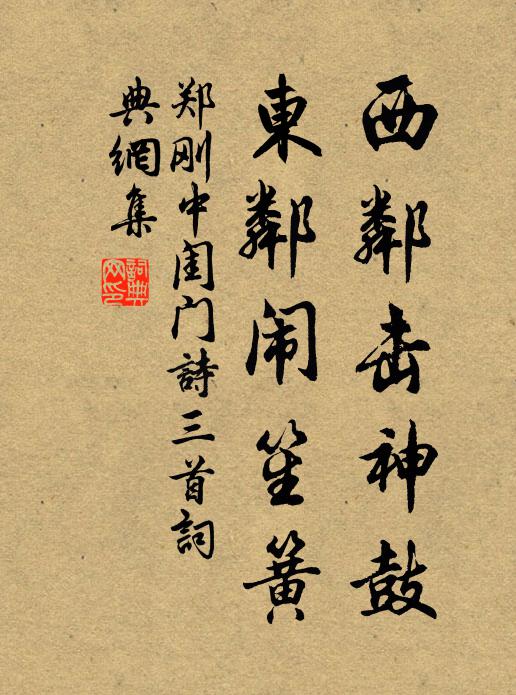 西鄰击神鼓
東鄰闹笙簧
郑刚中闺门詩三首詞
典網集
詞典
网印